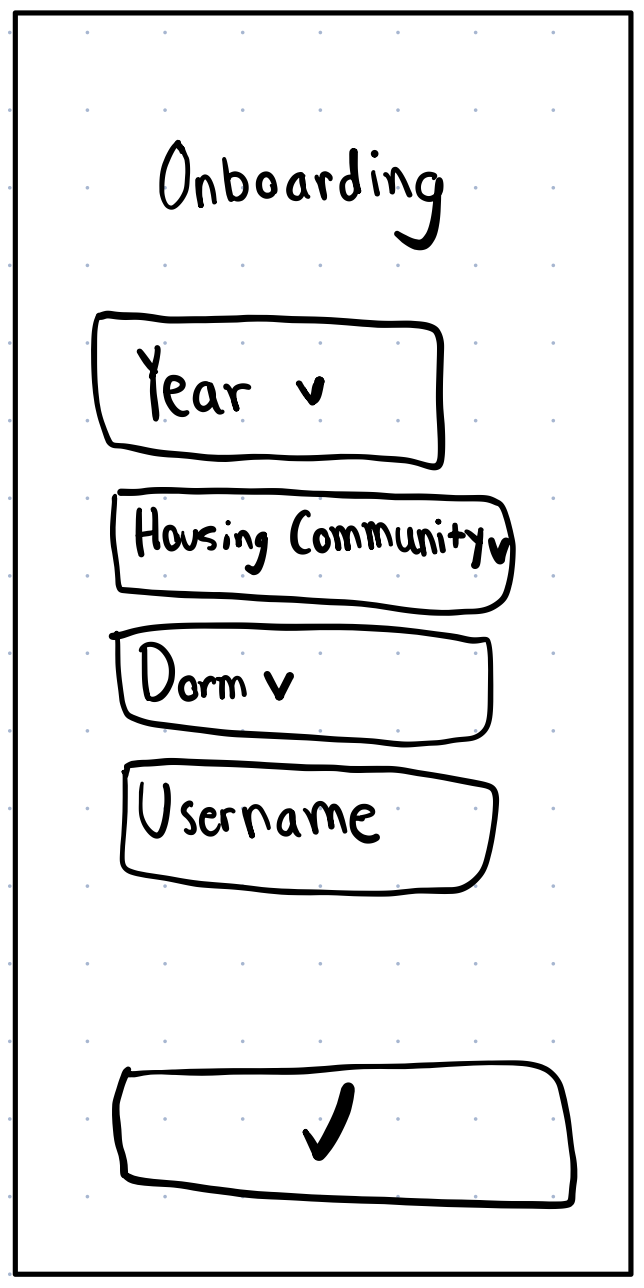 Onboarding
Year
Housing Community
Dorm
Username